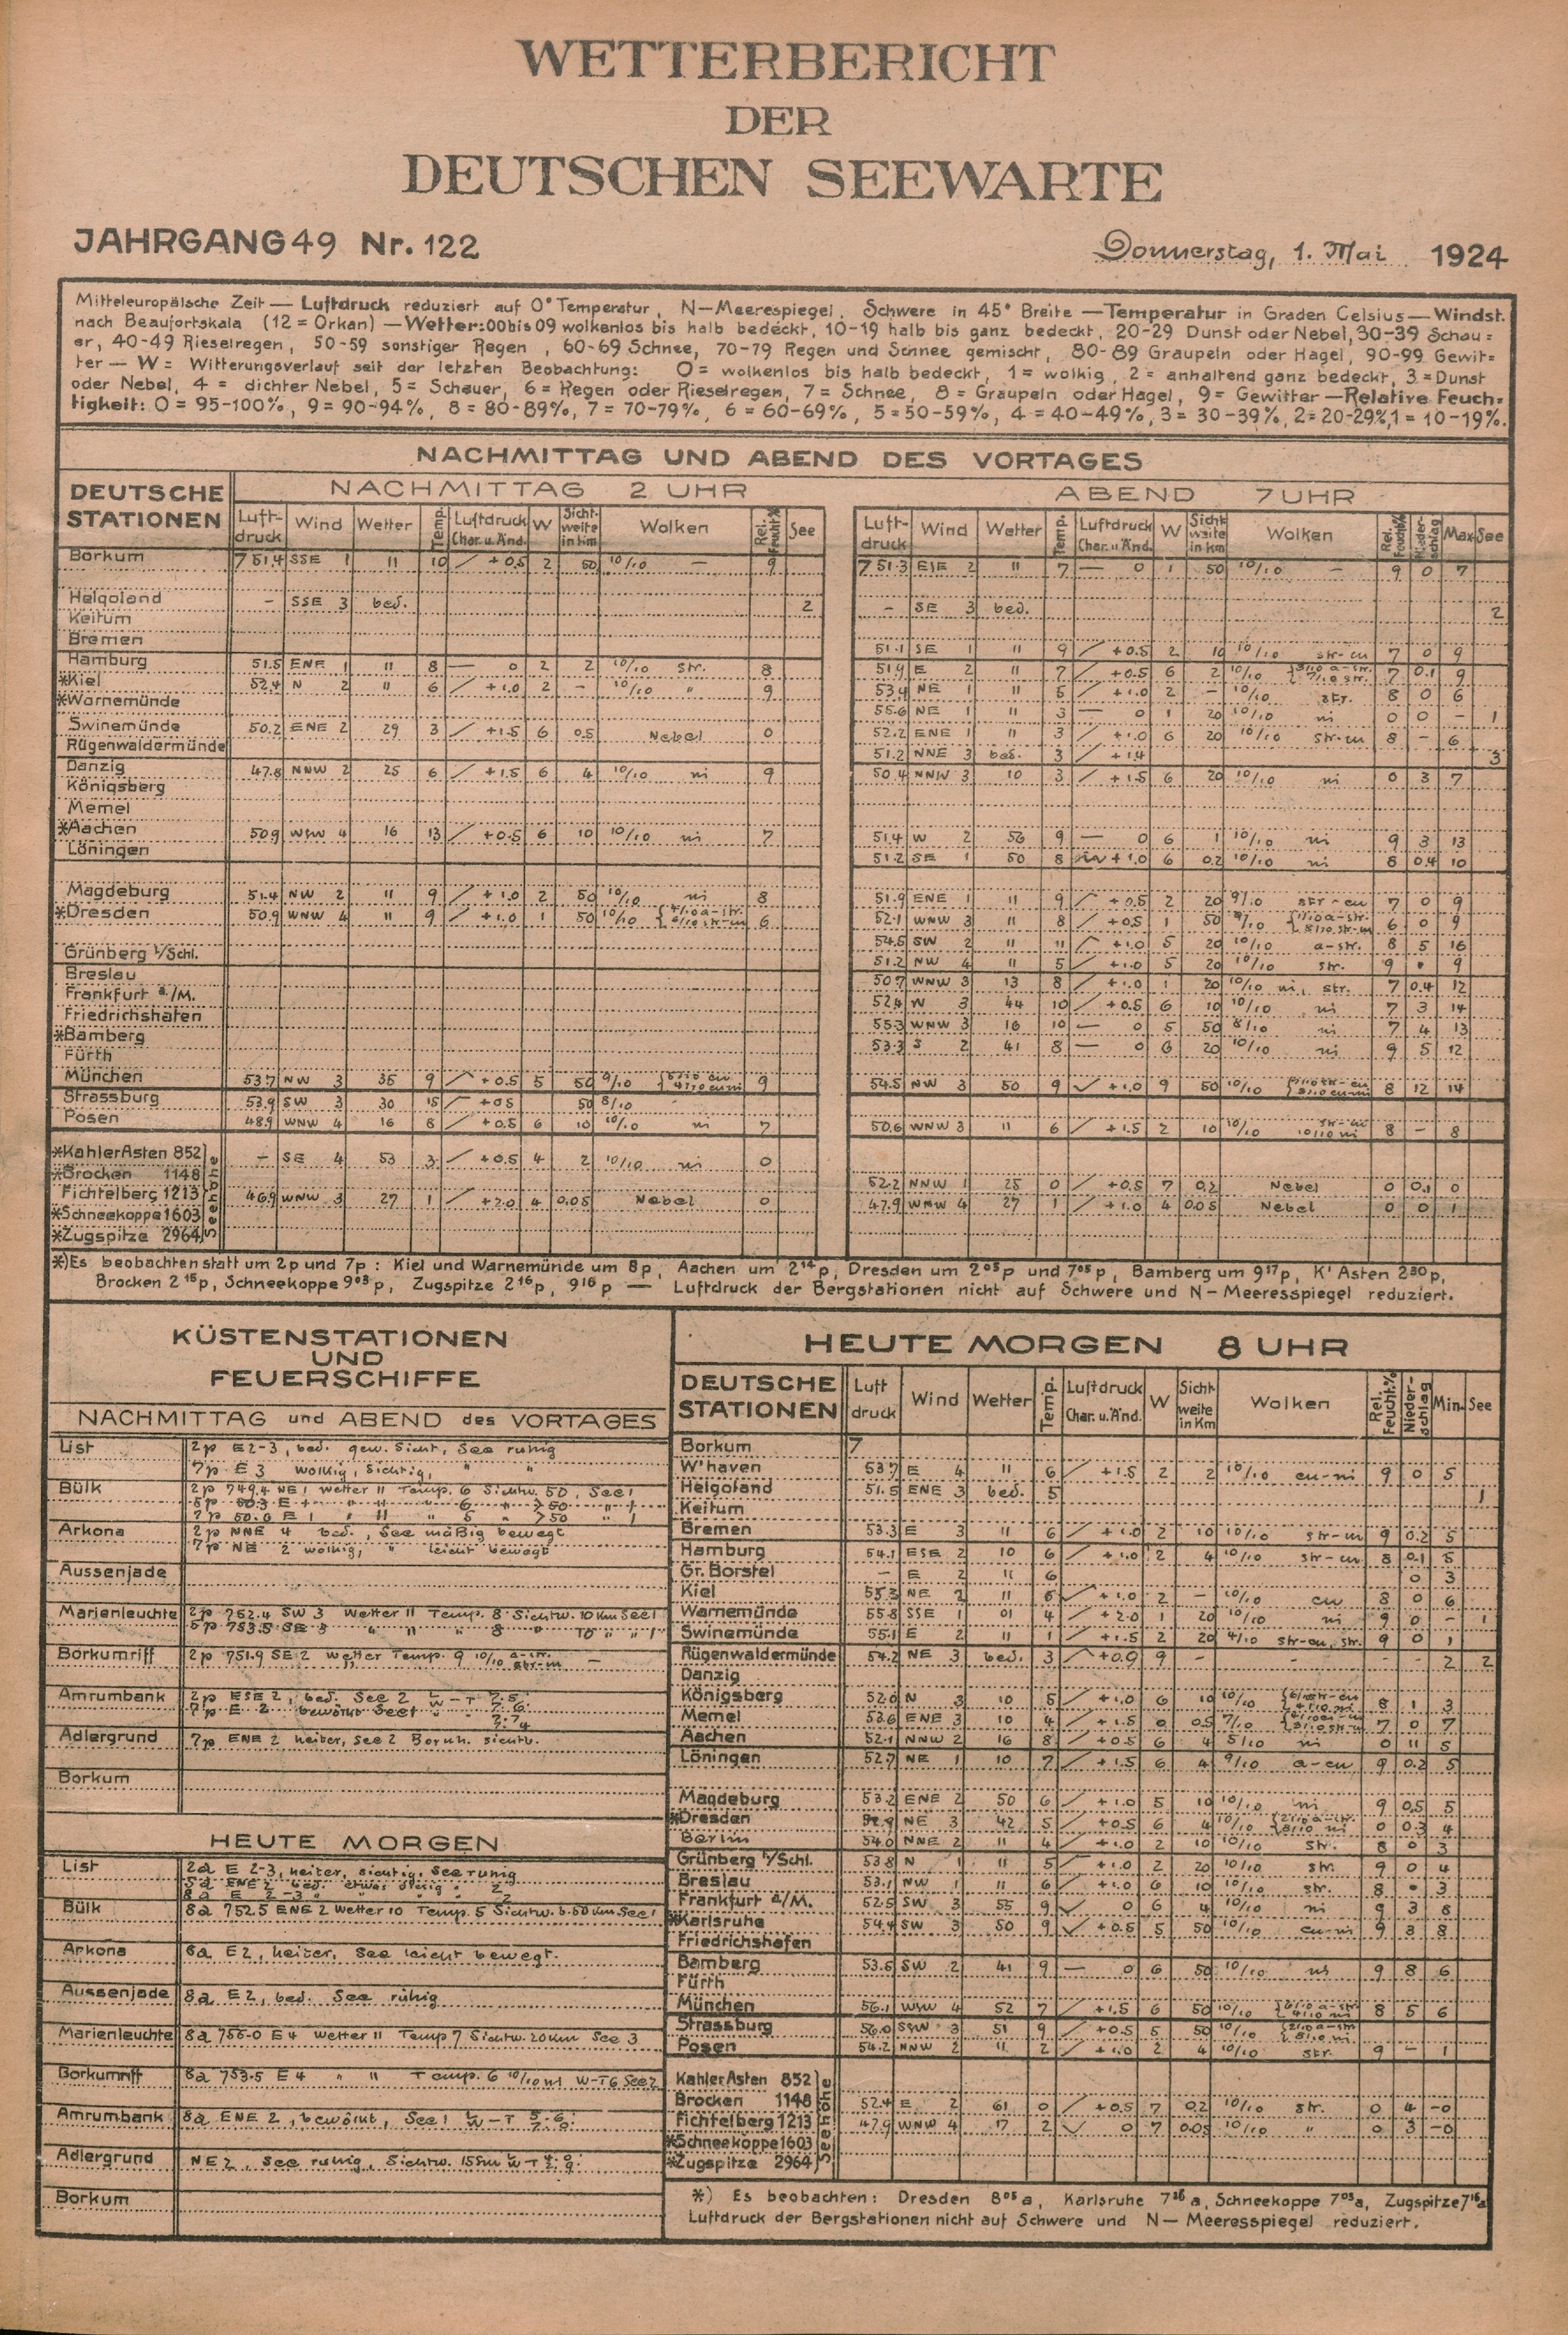 WETTERBERICHT
DER
DEUTSCHEN SEEWARTE
JAHRGANG 49 Nr. 122
Donnerstag, 1. Mai 1924
Mitteleuropäische Zeit — Luftdruck reduziert auf 0° Temperatur, N—Meerespiegel. Schwere in 45° Breite — Temperatur in Graden Celsius — Windst.
nach Beaufortskala (12 = Orkan) — Wetter: 00 bis 09 wolkenlos bis halb bedeckt, 10-19 halb bis ganz bedeckt, 20-29 Dunst oder Nebel, 30-39 Schau=
er, 40-49 Rieselregen, 50-59 sonstiger Regen, 60-69 Schnee, 70-79 Regen und Schnee gemischt, 80-89 Graupeln oder Hagel, 90-99 Gewit=
ter — W = Witterungsverlauf seit der letzten Beobachtung: 0 = wolkenlos bis halb bedeckt, 1 = wolkig, 2 = anhaltend ganz bedeckt, 3 = Dunst
oder Nebel, 4 = dichter Nebel, 5 = Schauer, 6 = Regen oder Rieselregen, 7 = Schnee, 8 = Graupeln oder Hagel, 9 = Gewitter — Relative Feuch=
tigkeit: 0 = 95-100%, 9 = 90-94%, 8 = 80-89%, 7 = 70-79%, 6 = 60-69%, 5 = 50-59%, 4 = 40-49%, 3 = 30-39%, 2 = 20-29%, 1 = 10-19%.
NACHMITTAG UND ABEND DES VORTAGES
DEUTSCHE STATIONEN
NACHMITTAG 2 UHR
Luftdruck Wind Wetter Temp. Luftdruck Char. u. Änd. W Sichtweite in km Wolken Rel. Feucht.% See
ABEND 7 UHR
Luftdruck Wind Wetter Temp. Luftdruck Char. u. Änd. W Sichtweite in km Wolken Rel. Feucht.% Niederschlag Max See
Borkum 751.4 SSE 1 11 10 +0.5 2 50 10/10 — 9 751.3 ESE 2 11 7 — 0 1 50 10/10 — 9 0 7
Helgoland — SSE 3 bed. 2 — SE 3 bed. 2
Keitum
Bremen 51.1 SE 1 11 9 +0.5 2 10 10/10 str-cu 7 0 9
Hamburg 51.5 ENE 1 11 8 — 0 2 2 10/10 str. 8 51.9 E 2 11 7 +0.5 6 2 10/10 7 0.1 9
*Kiel 52.4 N 2 11 6 +1.0 2 — 10/10 " 9 53.4 NE 1 11 5 +1.0 2 — 10/10 str. 8 0 6
*Warnemünde 55.6 NE 1 11 3 — 0 1 20 10/10 ni 0 0 — 1
Swinemünde 50.2 ENE 2 29 3 +1.5 6 0.5 Nebel 0 52.2 ENE 1 11 3 +1.0 6 20 10/10 str-cu 8 — 6
Rügenwaldermünde 51.2 NNE 3 bed. 3 +1.4 3
Danzig 47.8 NNW 2 25 6 +1.5 6 4 10/10 ni 9 50.4 NNW 3 10 3 +1.5 6 20 10/10 ni 0 3 7
Königsberg
Memel
*Aachen 50.9 WSW 4 16 13 +0.5 6 10 10/10 ni 7 51.4 W 2 56 9 — 0 6 1 10/10 ni 9 3 13
Löningen 51.2 SE 1 50 8 +1.0 6 0.2 10/10 ni 8 0.4 10
Magdeburg 51.4 NW 2 11 9 +1.0 2 50 10/10 ni 8 51.9 ENE 1 11 9 +0.5 2 20 9/10 str-cu 7 0 9
*Dresden 50.9 WNW 4 11 9 +1.0 1 50 10/10 6 52.1 WNW 3 11 8 +0.5 1 50 6 0 9
54.5 SW 2 11 11 +1.0 5 20 10/10 a-str. 8 5 16
Grünberg i/Schl. 51.2 NW 4 11 5 +1.0 5 20 10/10 str. 9 • 9
Breslau 50.7 WNW 3 13 8 +1.0 1 20 10/10 ni, str. 7 0.4 12
Frankfurt a./M. 52.4 N 3 44 10 +0.5 6 10 10/10 ni 7 3 14
Friedrichshafen 55.3 WNW 3 16 10 — 0 5 50 8/10 ni 7 4 13
*Bamberg 53.3 S 2 41 8 — 0 6 20 10/10 ni 9 5 12
Fürth
München 53.7 NW 3 35 9 +0.5 5 50 9/10 9 54.5 NW 3 50 9 +1.0 9 50 10/10 8 12 14
Strassburg 53.9 SW 3 30 15 +0.5 50 8/10
Posen 48.9 WNW 4 16 8 +0.5 6 10 10/10 ni 7 50.6 WNW 3 11 6 +1.5 2 10 10/10 8 — 8
*Kahler Asten 852 — SE 4 53 3 +0.5 4 2 10/10 ni 0
*Brocken 1148 52.2 NNW 1 25 0 +0.5 7 0.2 Nebel 0 0.1 0
Fichtelberg 1213 46.9 WNW 3 27 1 +2.0 4 0.05 Nebel 0 47.9 WNW 4 27 1 +1.0 4 0.05 Nebel 0 0 1
*Schneekoppe 1603
*Zugspitze 2964
Seehöhe
*) Es beobachten statt um 2p und 7p: Kiel und Warnemünde um 8p, Aachen um 2¹⁴p, Dresden um 2⁰⁵p und 7⁰⁵p, Bamberg um 9¹⁷p, K' Asten 2³⁰p,
Brocken 2¹⁵p, Schneekoppe 9⁰³p, Zugspitze 2¹⁶p, 9¹⁶p — Luftdruck der Bergstationen nicht auf Schwere und N—Meeresspiegel reduziert.
KÜSTENSTATIONEN
UND
FEUERSCHIFFE
NACHMITTAG und ABEND des VORTAGES
List 2p E 2-3, bed. gew. Sicht, See ruhig
7p E 3 wolkig, sichtig, " "
Bülk 2p 749.4 NE 1 Wetter 11 Temp. 6 Sichtw. 50, See 1
Arkona 2p NNE 4 bed., See mäßig bewegt
7p NE 2 wolkig, " leicht bewegt
Aussenjade
Marienleuchte 2p 752.4 SW 3 Wetter 11 Temp. 8 Sichtw. 10 Km See 1
5p 753.5 SE 3 " 11 " 8 " 10 " " 1
Borkumriff 2p 751.9 SE 2 Wetter Temp. 9 10/10 —
Amrumbank 2p ESE 2, bed. See 2
7p E 2 bewölkt See 1
Adlergrund 7p ENE 2 heiter, See 2 Bornh. sichtb.
Borkum
HEUTE MORGEN
List 2a E 2-3, heiter, sichtig, See ruhig
5a ENE 2 bed. etwas diesig " 2
8a E 2-3 " " " 2
Bülk 8a 752.5 ENE 2 Wetter 10 Temp. 5 Sichtw. b. 50 Km See 1
Arkona 8a E 2, heiter, See leicht bewegt.
Aussenjade 8a E 2, bed. See ruhig
Marienleuchte 8a 755.0 E 4 Wetter 11 Temp 7 Sichtw. 20 Km See 3
Borkumriff 8a 753.5 E 4 " 11 Temp. 6 10/10 ni W-T 6 See 2
Amrumbank 8a ENE 2, bewölkt, See 1
Adlergrund NE 2, See ruhig, Sichtw. 15 Sm
Borkum
HEUTE MORGEN 8 UHR
DEUTSCHE STATIONEN Luftdruck Wind Wetter Temp. Luftdruck Char. u. Änd. W Sichtweite in Km Wolken Rel. Feucht.% Niederschlag Min. See
Borkum 7
W'haven 53.7 E 4 11 6 +1.5 2 2 10/10 cu-ni 9 0 5
Helgoland 51.5 ENE 3 bed. 5 1
Keitum
Bremen 53.3 E 3 11 6 +1.0 2 10 10/10 9 0.2 5
Hamburg 54.1 ESE 2 10 6 +1.0 2 4 10/10 str-cu 8 0.1 5
Gr. Borstel — E 2 11 6 0 3
Kiel 55.3 NE 2 11 6 +1.0 2 — 10/10 cu 8 0 6
Warnemünde 55.8 SSE 1 01 4 +2.0 1 20 10/10 ni 9 0 — 1
Swinemünde 55.1 E 2 11 1 +1.5 2 20 4/10 str-cu, str. 9 0 1
Rügenwaldermünde 54.2 NE 3 bed. 3 +0.9 9 — — — — 2 2
Danzig
Königsberg 52.0 N 3 10 5 +1.0 6 10 10/10 8 1 3
Memel 53.6 ENE 3 10 4 +1.5 0 0.5 7/10 7 0 7
Aachen 52.1 NNW 2 16 8 +0.5 6 4 5/10 ni 0 11 5
Löningen 52.7 NE 1 10 7 +1.5 6 4 9/10 a-cu 9 0.2 5
Magdeburg 53.2 ENE 2 50 6 +1.0 5 10 10/10 ni 9 0.5 5
*Dresden NE 3 42 5 +0.5 6 4 10/10 0 0.3 4
Berlin 54.0 NNE 2 11 4 +1.0 2 10 10/10 str. 8 0 3
Grünberg i/Schl. 53.8 N 1 11 5 +1.0 2 20 10/10 str. 9 0 4
Breslau 53.1 NW 1 11 6 +1.0 6 10 10/10 str. 8 • 3
Frankfurt a/M. 52.5 SW 3 55 9 0 6 4 10/10 ni 9 3 8
*Karlsruhe 54.4 SW 3 50 9 +0.5 5 50 10/10 cu-ni 9 3 8
Friedrichshafen
Bamberg 53.6 SW 2 41 9 — 0 6 50 10/10 ni 9 8 6
Fürth
München 56.1 WSW 4 52 7 +1.5 6 50 10/10 8 5 6
Strassburg 56.0 SSW 3 51 9 +0.5 5 50 10/10
Posen 54.2 NNW 2 11 2 +1.0 2 4 10/10 str. 9 — 1
Kahler Asten 852
Brocken 1148 52.4 E 2 61 0 +0.5 7 0.2 10/10 str. 0 4 -0
Fichtelberg 1213 47.9 WNW 4 17 2 0 7 0.05 10/10 " 0 3 -0
*Schneekoppe 1603
*Zugspitze 2964
Seehöhe
*) Es beobachten: Dresden 8⁰⁵a, Karlsruhe 7³⁶a, Schneekoppe 7⁰³a, Zugspitze 7¹⁶a
Luftdruck der Bergstationen nicht auf Schwere und N—Meeresspiegel reduziert.